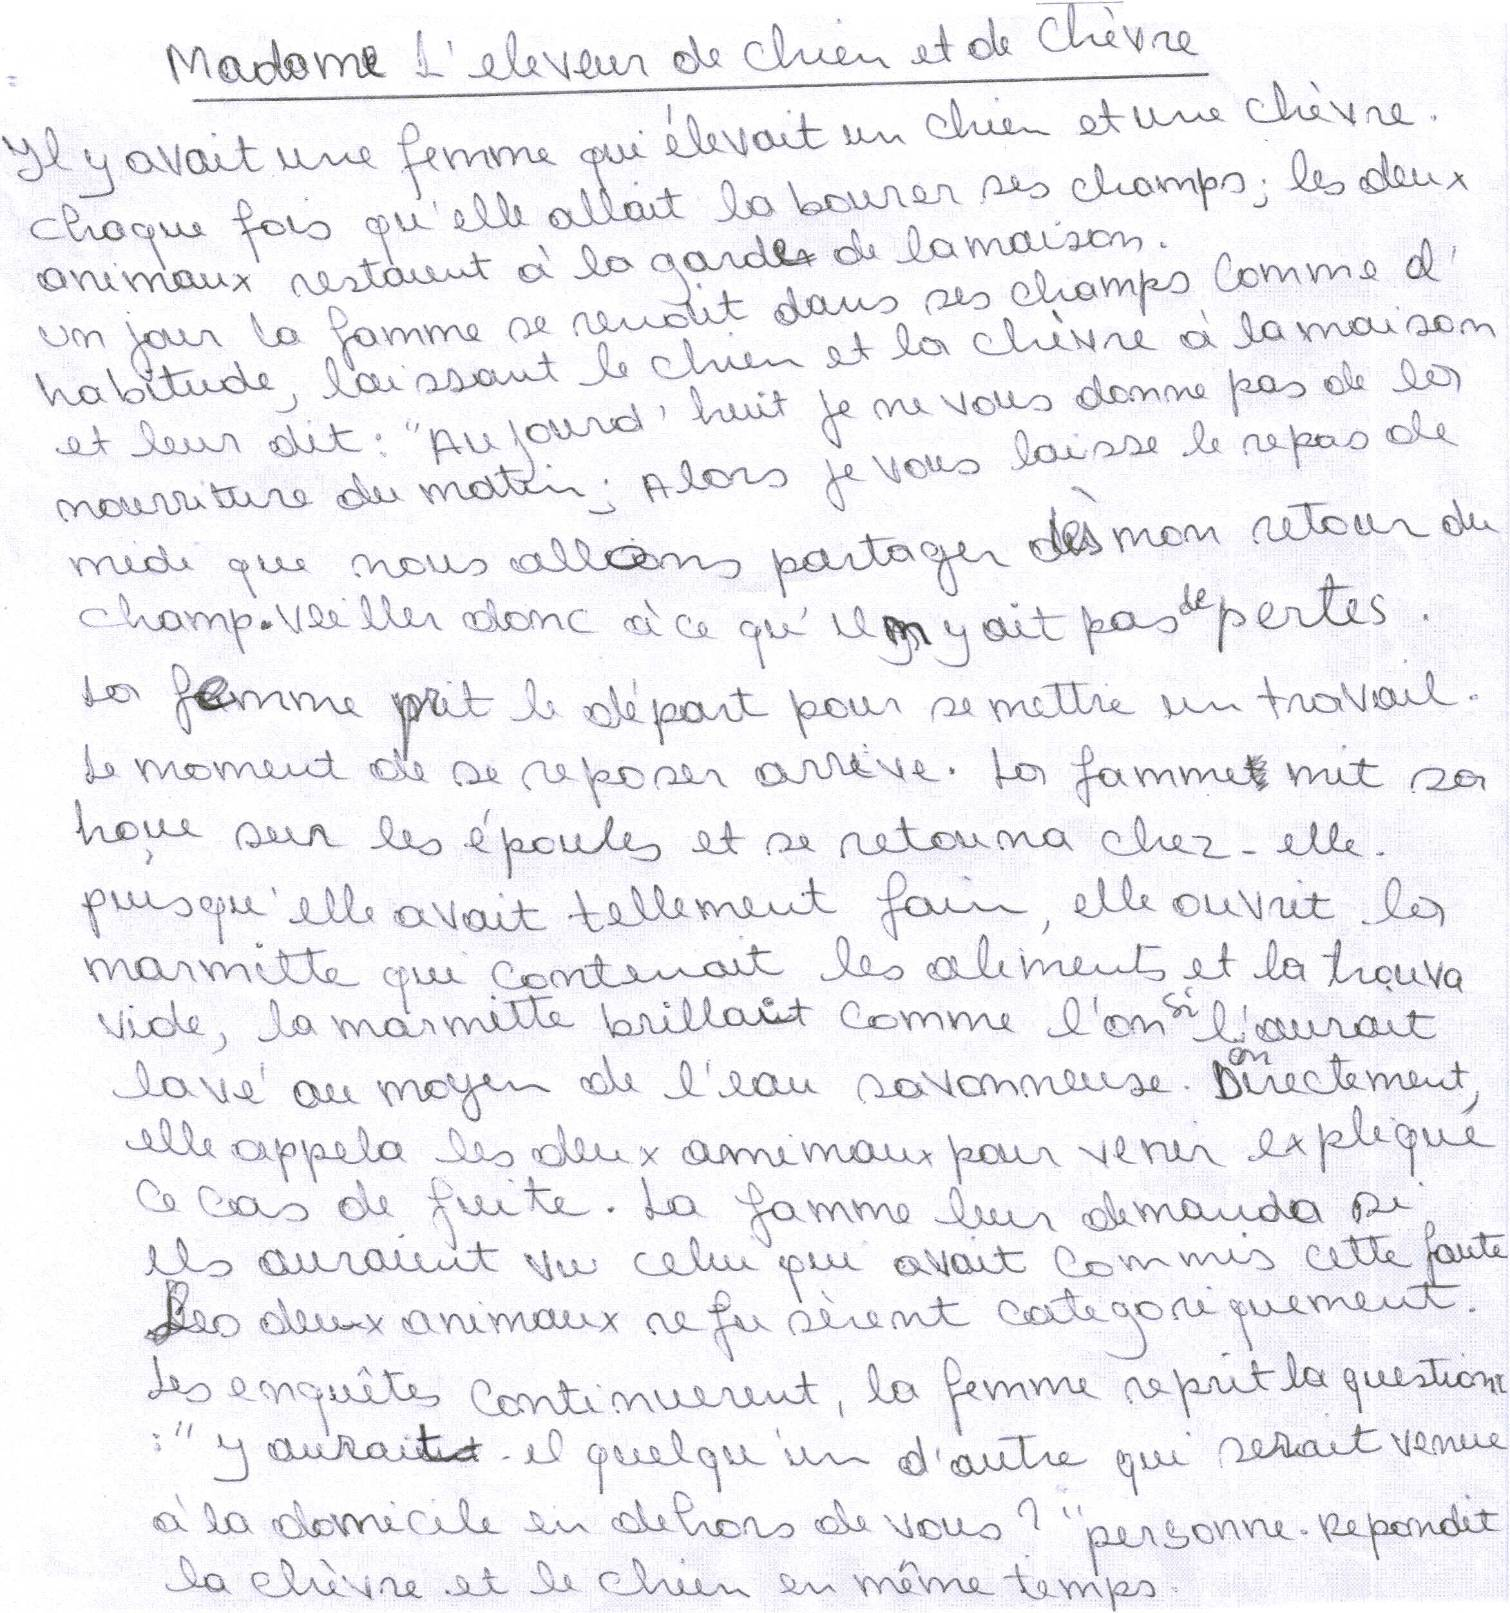 Madame L'eleveur de chien et de chèvre
Il y avait une femme qui élevait un chien et une chèvre.
chaque fois qu'elle allait labourer ses champs; les deux
animaux restaient à la garde de la maison.
un jour la famme se rendit dans ses champs comme d'
habitude, laissant le chien et la chèvre à la maison
et leur dit: "Aujourd'huit je ne vous donne pas de la
nourriture du matin; Alors je vous laisse le repas de
midi que nous allons partager dès mon retour du
champ. Veiller donc à ce qu'il n y ait pas de pertes.
La femme prit le départ pour se mettre un travail.
Le moment de se reposer arrive. La famme mit sa
houe sur les épaules et se retourna chez-elle.
puisqu'elle avait tellement faim, elle ouvrit la
marmitte qui contenait les aliments et la trouva
vide, la marmitte brillait comme l'on si l'aurait
lavé au moyen de l'eau savonneuse. Directement,
elle appela les deux animaux pour venir expliqué
ce cas de fuite. La famme leur demanda si
ils auraient vu celui qui avait commis cette faute
Les deux animaux refusèrent categoriquement.
Les enquêtes continuerent, la femme reprit la question
:" y aurait-il quelqu'un d'autre qui serait venue
à la domicile en dehors de vous? "personne. Repondit
la chèvre et le chien en même temps.